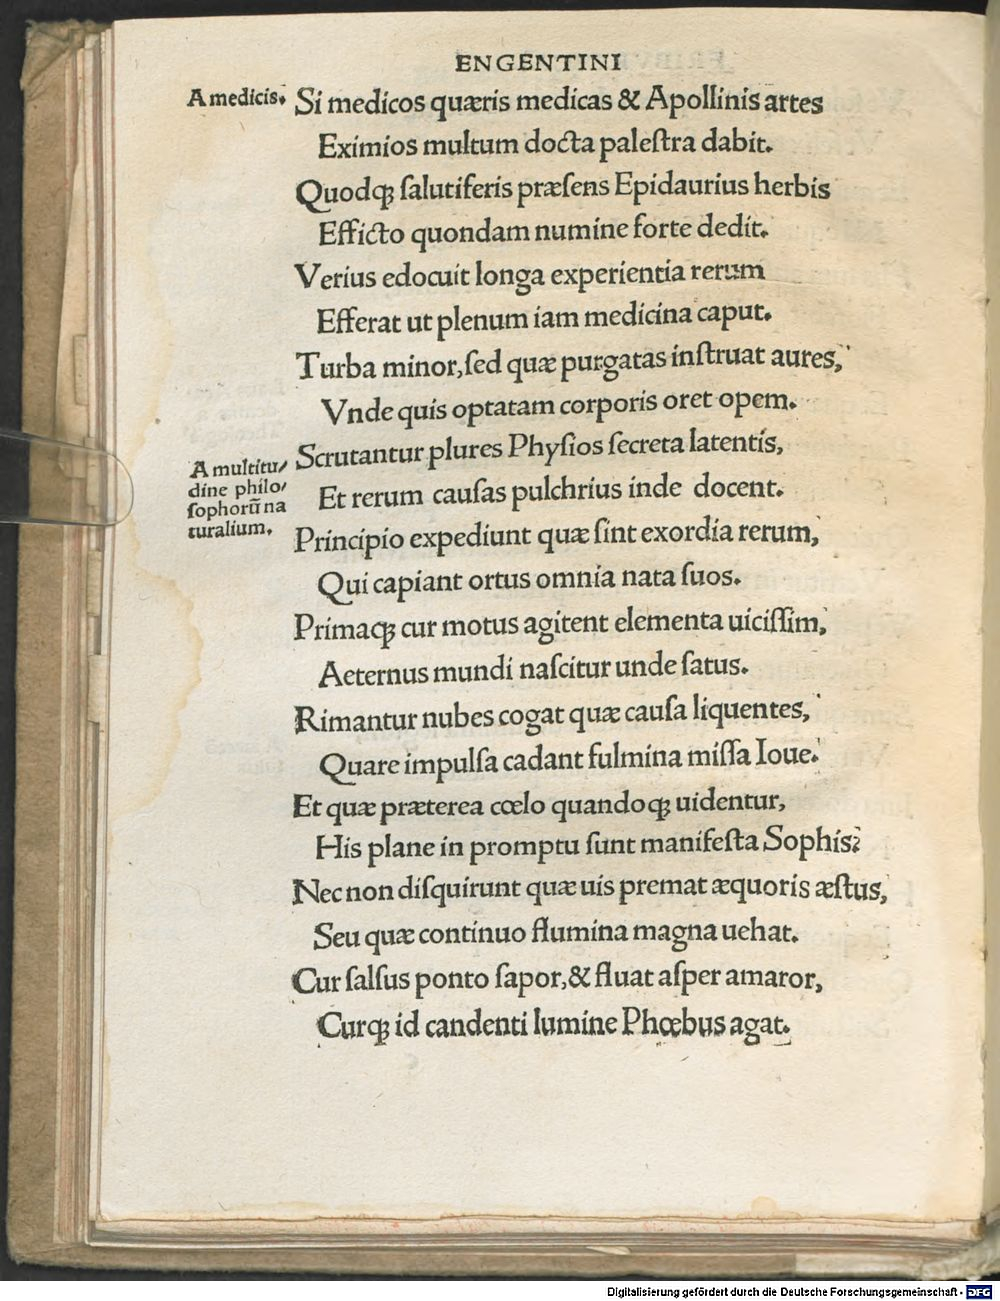 ENGENTINI
A medicis. Si medicos quæris medicas & Apollinis artes
Eximios multum docta paleſtra dabit.
Quodqꝫ ſalutiferis præſens Epidaurius herbis
Efficto quondam numine forte dedit.
Verius edocuit longa experientia rerum
Efferat ut plenum iam medicina caput.
Turba minor, ſed quæ purgatas inſtruat aures,
Vnde quis optatam corporis oret opem.
A multitu/
dine philo/
ſophorū na
turalium.
Scrutantur plures Phyſios ſecreta latentis,
Et rerum cauſas pulchrius inde docent.
Principio expediunt quæ ſint exordia rerum,
Qui capiant ortus omnia nata ſuos.
Primaqꝫ cur motus agitent elementa uiciſſim,
Aeternus mundi naſcitur unde ſatus.
Rimantur nubes cogat quæ cauſa liquentes,
Quare impulſa cadant fulmina miſſa Ioue.
Et quæ præterea cœlo quandoqꝫ uidentur,
His plane in promptu ſunt manifeſta Sophis?
Nec non diſquirunt quæ uis premat æquoris æſtus,
Seu quæ continuo flumina magna uehat.
Cur ſalſus ponto ſapor, & fluat aſper amaror,
Curqꝫ id candenti lumine Phœbus agat.
Digitalisierung gefördert durch die Deutsche Forschungsgemeinschaft - DFG